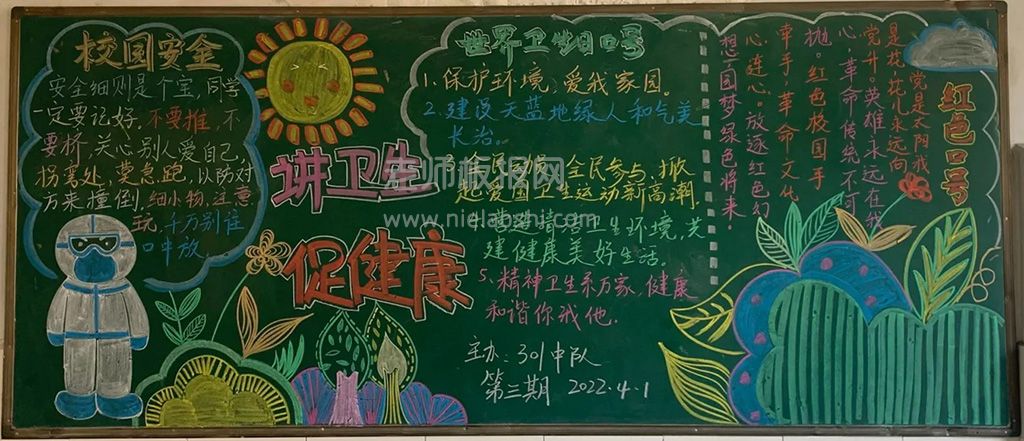 校园安全
安全细则是个宝,同学
一定要记好。不要推,不
要挤,关心别人爱自己,
拐弯处,莫急跑,以防对
方来撞倒,细小物,注意
玩,千万别往
口中放。
讲卫生
促健康
世界卫生日口号
1.保护环境,爱我家园。
2.建设天蓝地绿人和气美
长治。
全民参与,掀
起爱国卫生运动新高潮.
卫生环境,共
建健康美好生活。
5.精神卫生系万家,健康
和谐你我他.
主办:301中队
第三期 2022.4.1
红色口号
党是太阳我
是花,花儿永远向
党开。英雄永远在我
心,革命传统不可
抛。红色校园手
牵手,革命文化
心连心。放逐红色幻
想,圆梦绿色将来。
师板报网